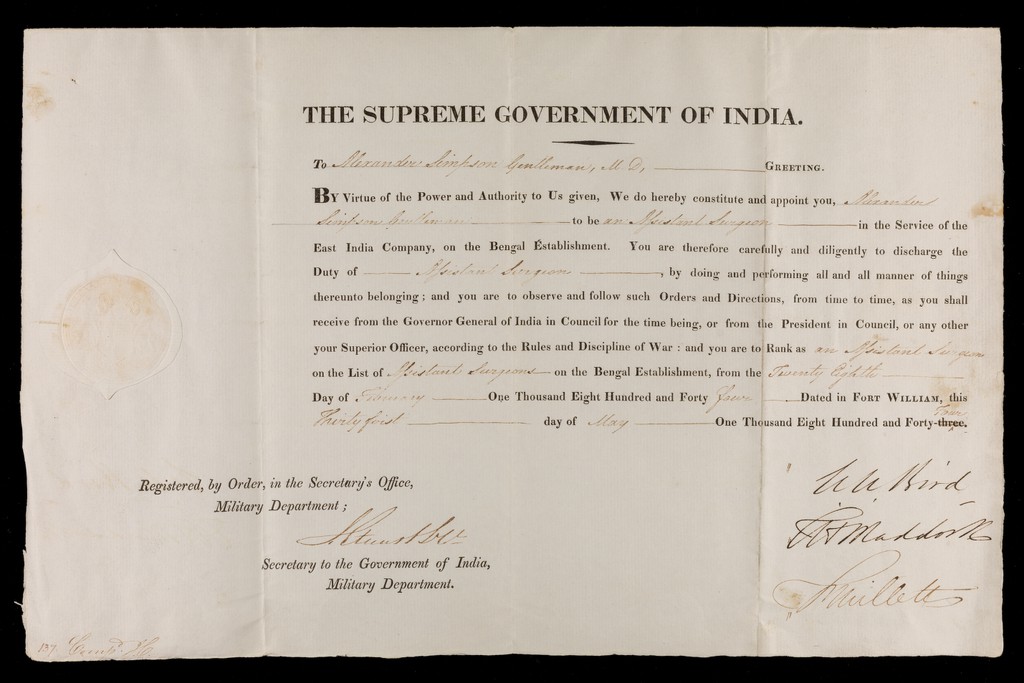 THE SUPREME GOVERNMENT OF INDIA.
To Alexander Simpson Gentleman, M.D, GREETING.
BY Virtue of the Power and Authority to Us given, We do hereby constitute and appoint you, Alexander
Simpson Gentleman to be an Assistant Surgeon in the Service of the
East India Company, on the Bengal Establishment. You are therefore carefully and diligently to discharge the
Duty of Assistant Surgeon, by doing and performing all and all manner of things
thereunto belonging; and you are to observe and follow such Orders and Directions, from time to time, as you shall
receive from the Governor General of India in Council for the time being, or from the President in Council, or any other
your Superior Officer, according to the Rules and Discipline of War: and you are to Rank as an Assistant Surgeon
on the List of Assistant Surgeons on the Bengal Establishment, from the Twenty Eighth
Day of One Thousand Eight Hundred and Forty four. Dated in FORT WILLIAM, this
Thirty first day of May One Thousand Eight Hundred and Forty-three. Four
Registered, by Order, in the Secretary's Office,
Military Department;
Secretary to the Government of India,
Military Department.
Bird
Maddock
Millett
137.